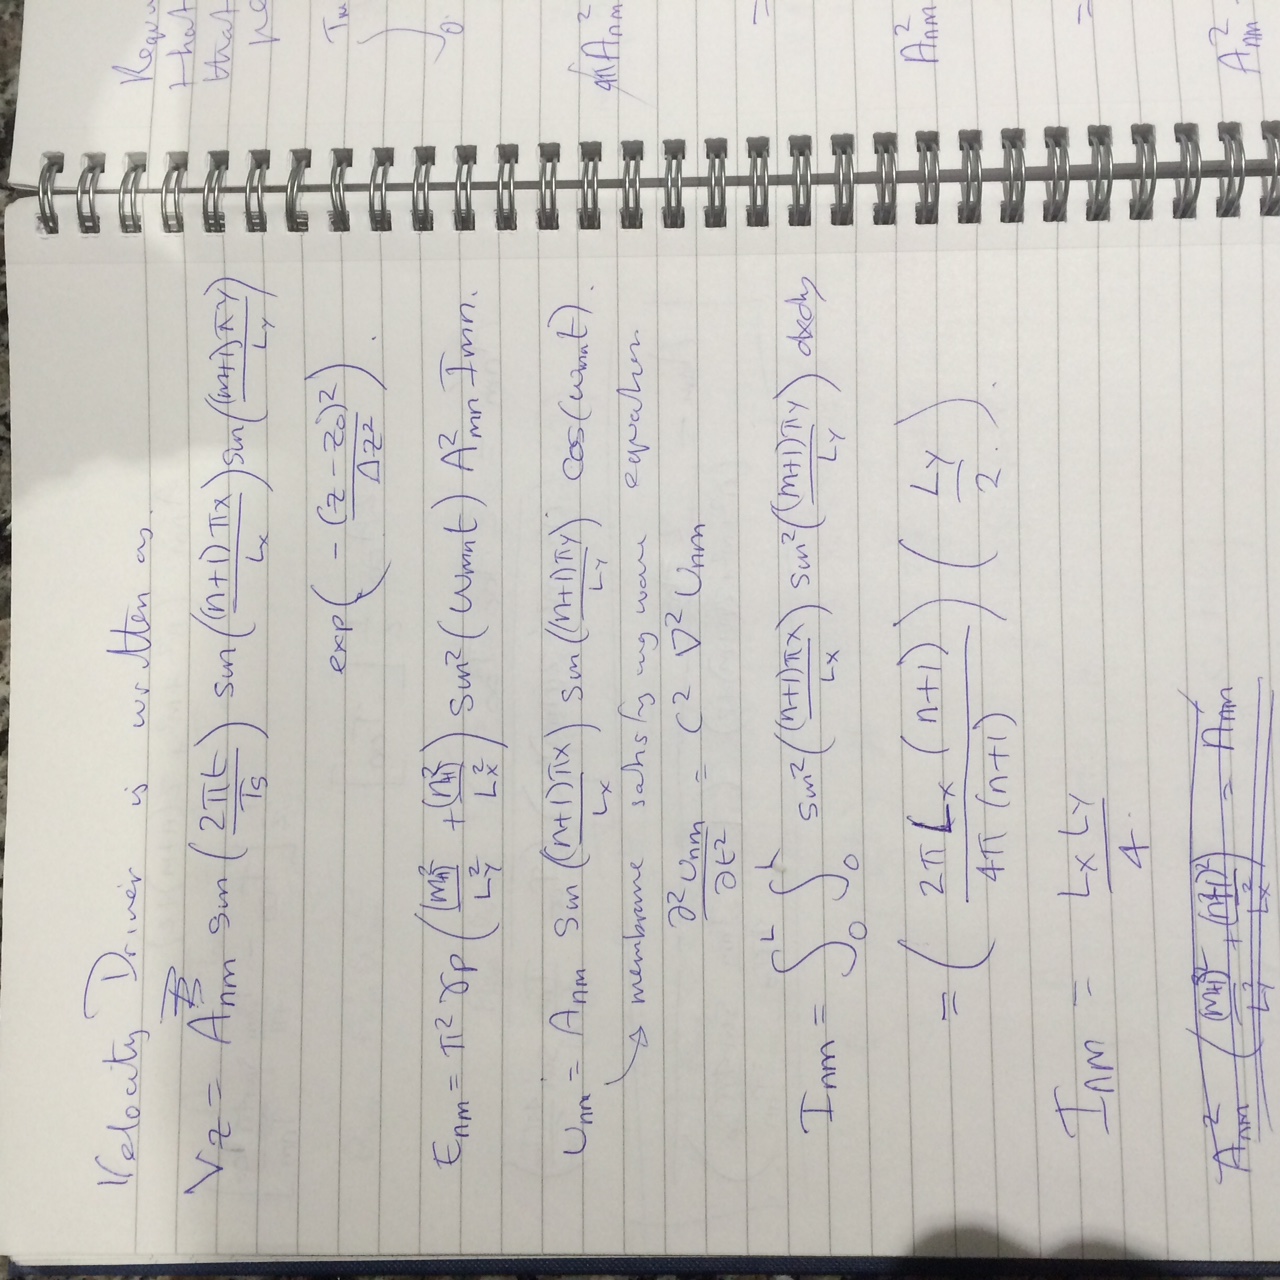 Velocity Driver is written as.
V_z = A_nm sin(2πt/T_s) sin((n+1)πx/L_x) sin((m+1)πy/L_y)
exp(-(z-z_0)²/Δz²).
E_nm = π² γp ((m+1)²/L_y² + (n+1)²/L_x²) sin²(ω_mn t) A²_mn I_mn.
U_nm = A_nm sin((n+1)πx/L_x) sin((n+1)πy/L_y) cos(ω_mn t).
→ membrane satisfying wave equation
∂²U_nm/∂t² = C² ∇² U_nm
I_nm = ∫_0^L ∫_0^L sin²((n+1)πx/L_x) sin²((m+1)πy/L_y) dxdy
= (2πL_x (n+1)/4π (n+1)) (L_y/2).
I_nm = L_x L_y/4.
A_nm² ((m+1)²/L_y² + (n+1)²/L_x²) = A_nm
that
that
∫_0
A²_nm
=
A²_nm
=
A²_nm